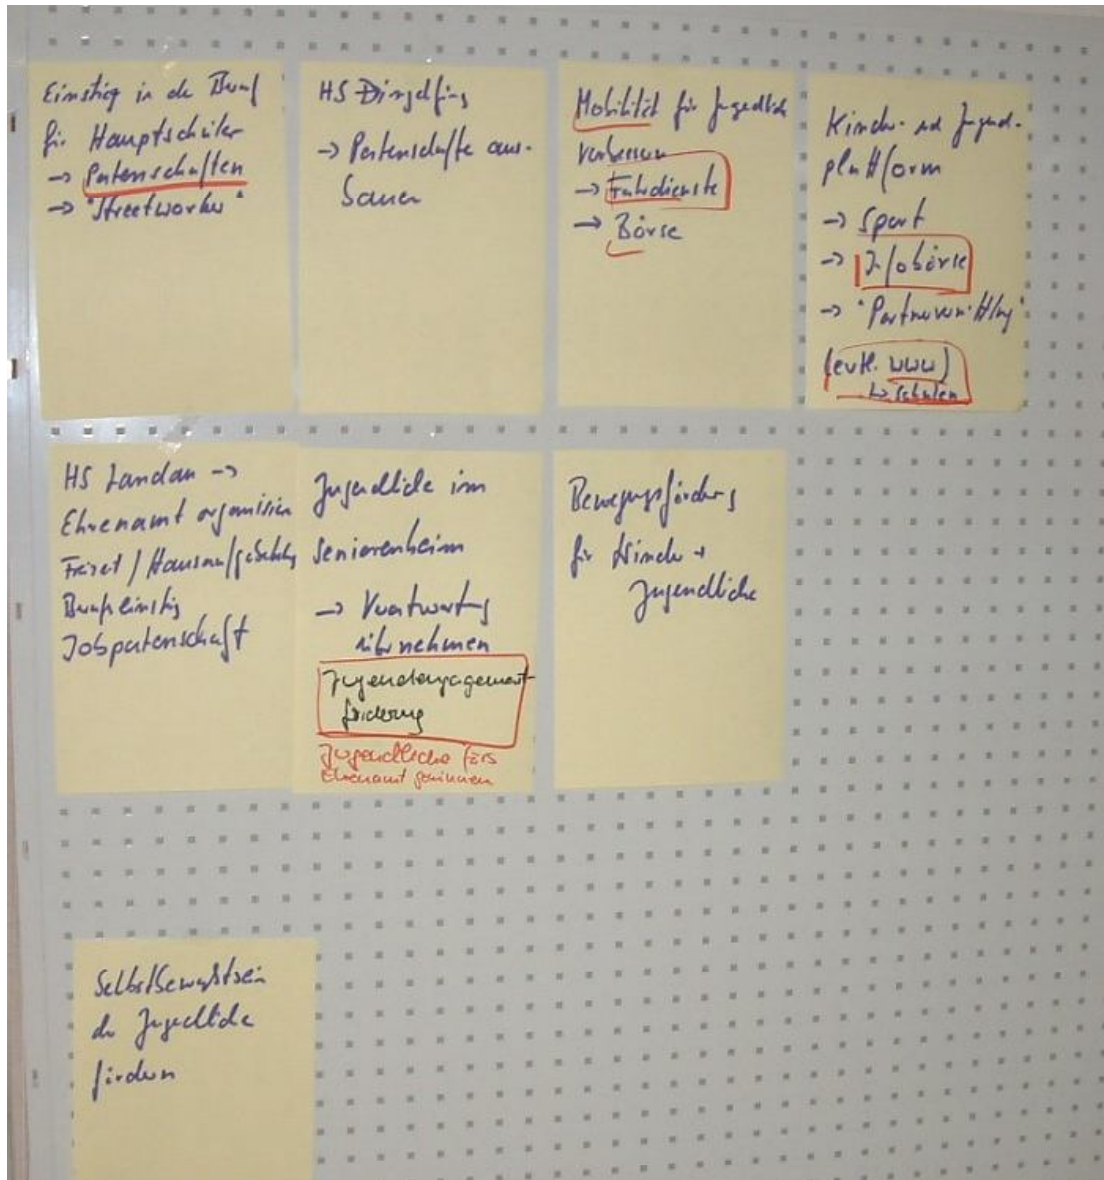 Einstieg in de Beruf
für Hauptschüler
→ Patenschaften
→ "Streetworker"
HS Dingolfing
→ Patenschafte aus-
bauen
Mobilität für Jugendlich
verbessern
→ Fahrdienste
→ Börse
Kinder- und Jugend-
plattform
→ Sport
→ Infobörse
→ "Partnervermittlung"
(evtl. www)
↳ Schulen
HS Landau →
Ehrenamt organisieren
Freizeit / Hausaufgaben
Berufseinstieg
Jobpatenschaft
Jugendliche im
Seniorenheim
→ Verantwortung
übernehmen
Jugendengagement-
förderung
Jugendliche fürs
Ehrenamt gewinnen
Bewegungsförderung
für Kinder +
Jugendliche
Selbstbewusstsein
der Jugendliche
fördern